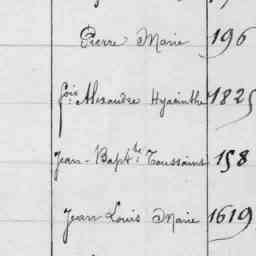 Pierre Marie 196
fois Alexandre Hyacinthe 1825
Jean-Bapt.te Toussains 158
Jean Louis Marie 1619